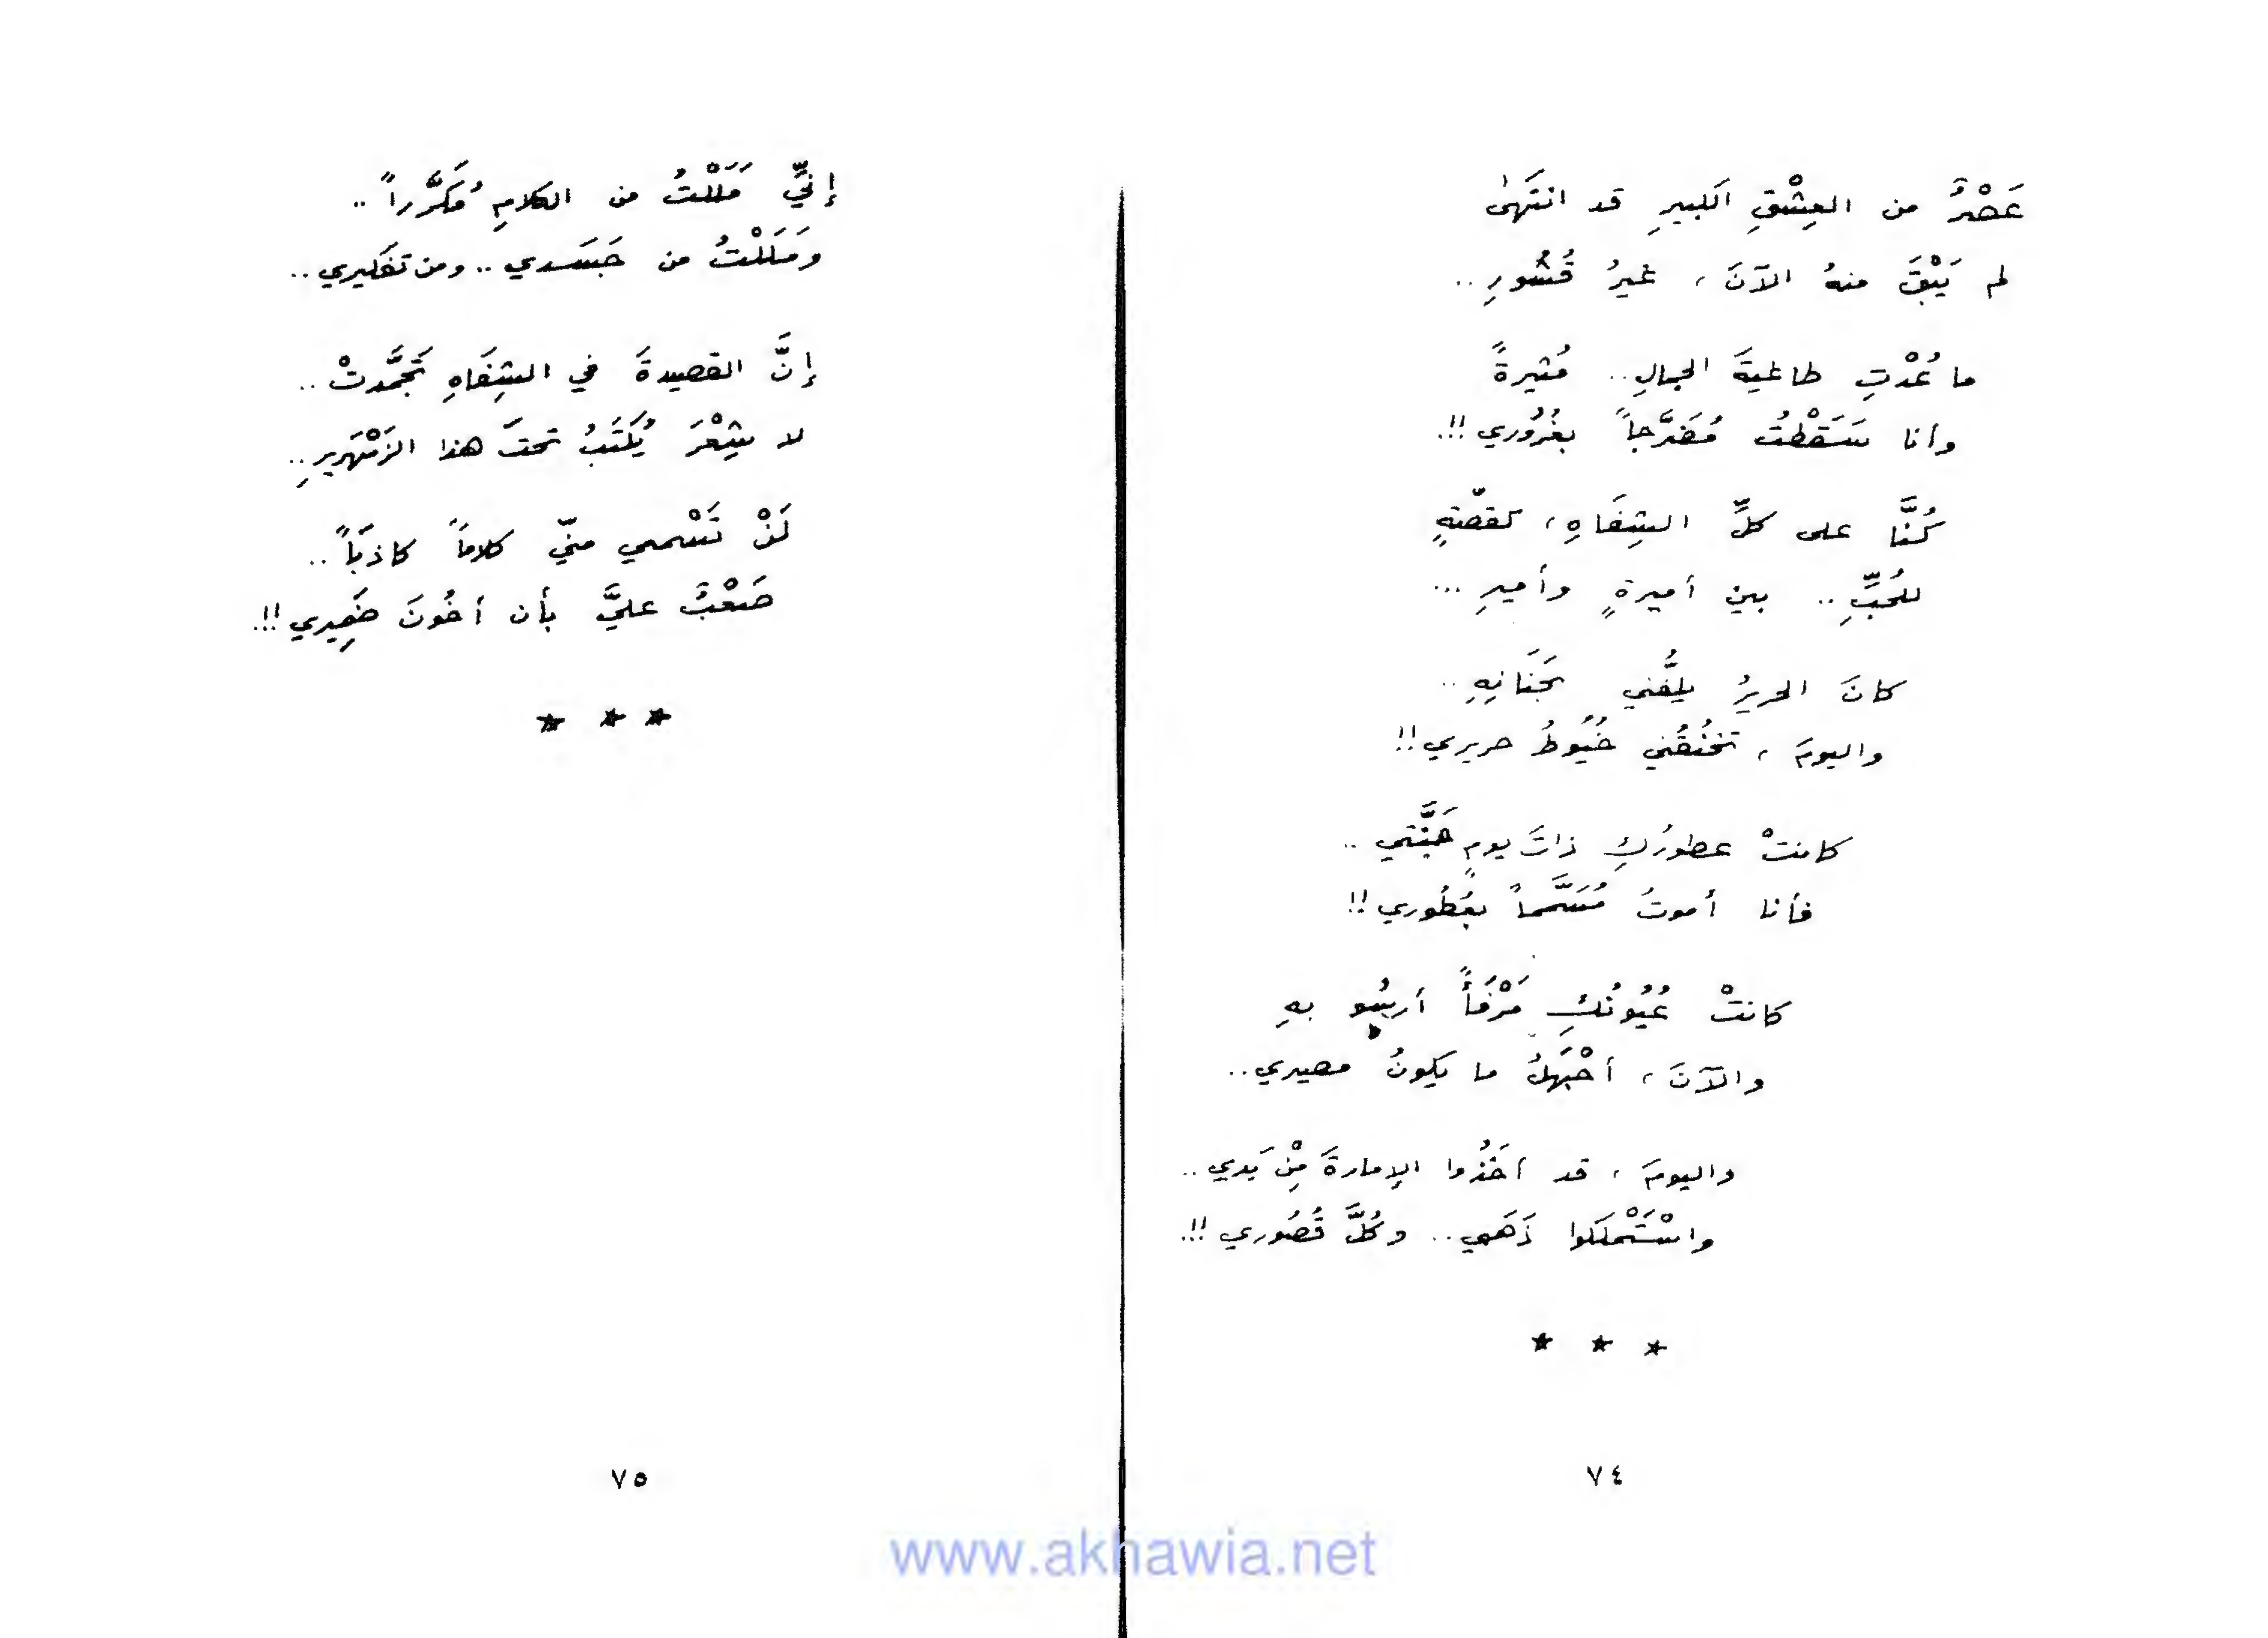 عَصْرٌ من العِشْقِ الكبيرِ قد انتَهَىٰ
لم يَبْقَ منهُ الآنَ ، غيرُ قُشُورِ ..
ما عُدْتِ طاغيةَ الجمالِ .. مُثيرةً
وأنا سَقَطْتُ مُضَرَّجاً بغُرُوري !!.
كُنَّا على كلِّ الشِفَاهِ ، كقصّةٍ
للحُبِّ .. بين أميرةٍ وأميرِ ...
كانَ الحريرُ يلفُّني بحَنَانِهِ ..
واليومَ ، تخنُقُني خُيُوطُ حريري !!
كانتْ عطورُكِ ذاتَ يومٍ جَنَّتي ..
فأنا أموتُ مُسَمَّماً بعُطُوري !!
كانتْ عُيُونُكِ مَرْفَأً أرسُو بهِ
والآنَ ، أجْهَلُ ما يكونُ مصيري ..
واليومَ ، قد أخَذُوا الإمارةَ مِنْ يَدي ..
واسْتَمْلَكوا ذَهَبي .. وكُلَّ قُصُوري !!.
* * *
٧٤
إنّي مَلَلْتُ من الكلامِ مُكَرَّراً ..
ومَلَلْتُ من جَسَدي .. ومن تفكيري ..
إنَّ القصيدةَ في الشِفَاهِ تَجَمَّدتْ ..
لا شِعْرَ يُكتَبُ تحتَ هذا الزَمْهَريرِ ..
لَنْ تَسْمعي منّي كلاماً كاذبَاً ..
صَعْبٌ عليَّ بأن أخُونَ ضَمِيري !!.
* * *
٧٥
www.akhawia.net